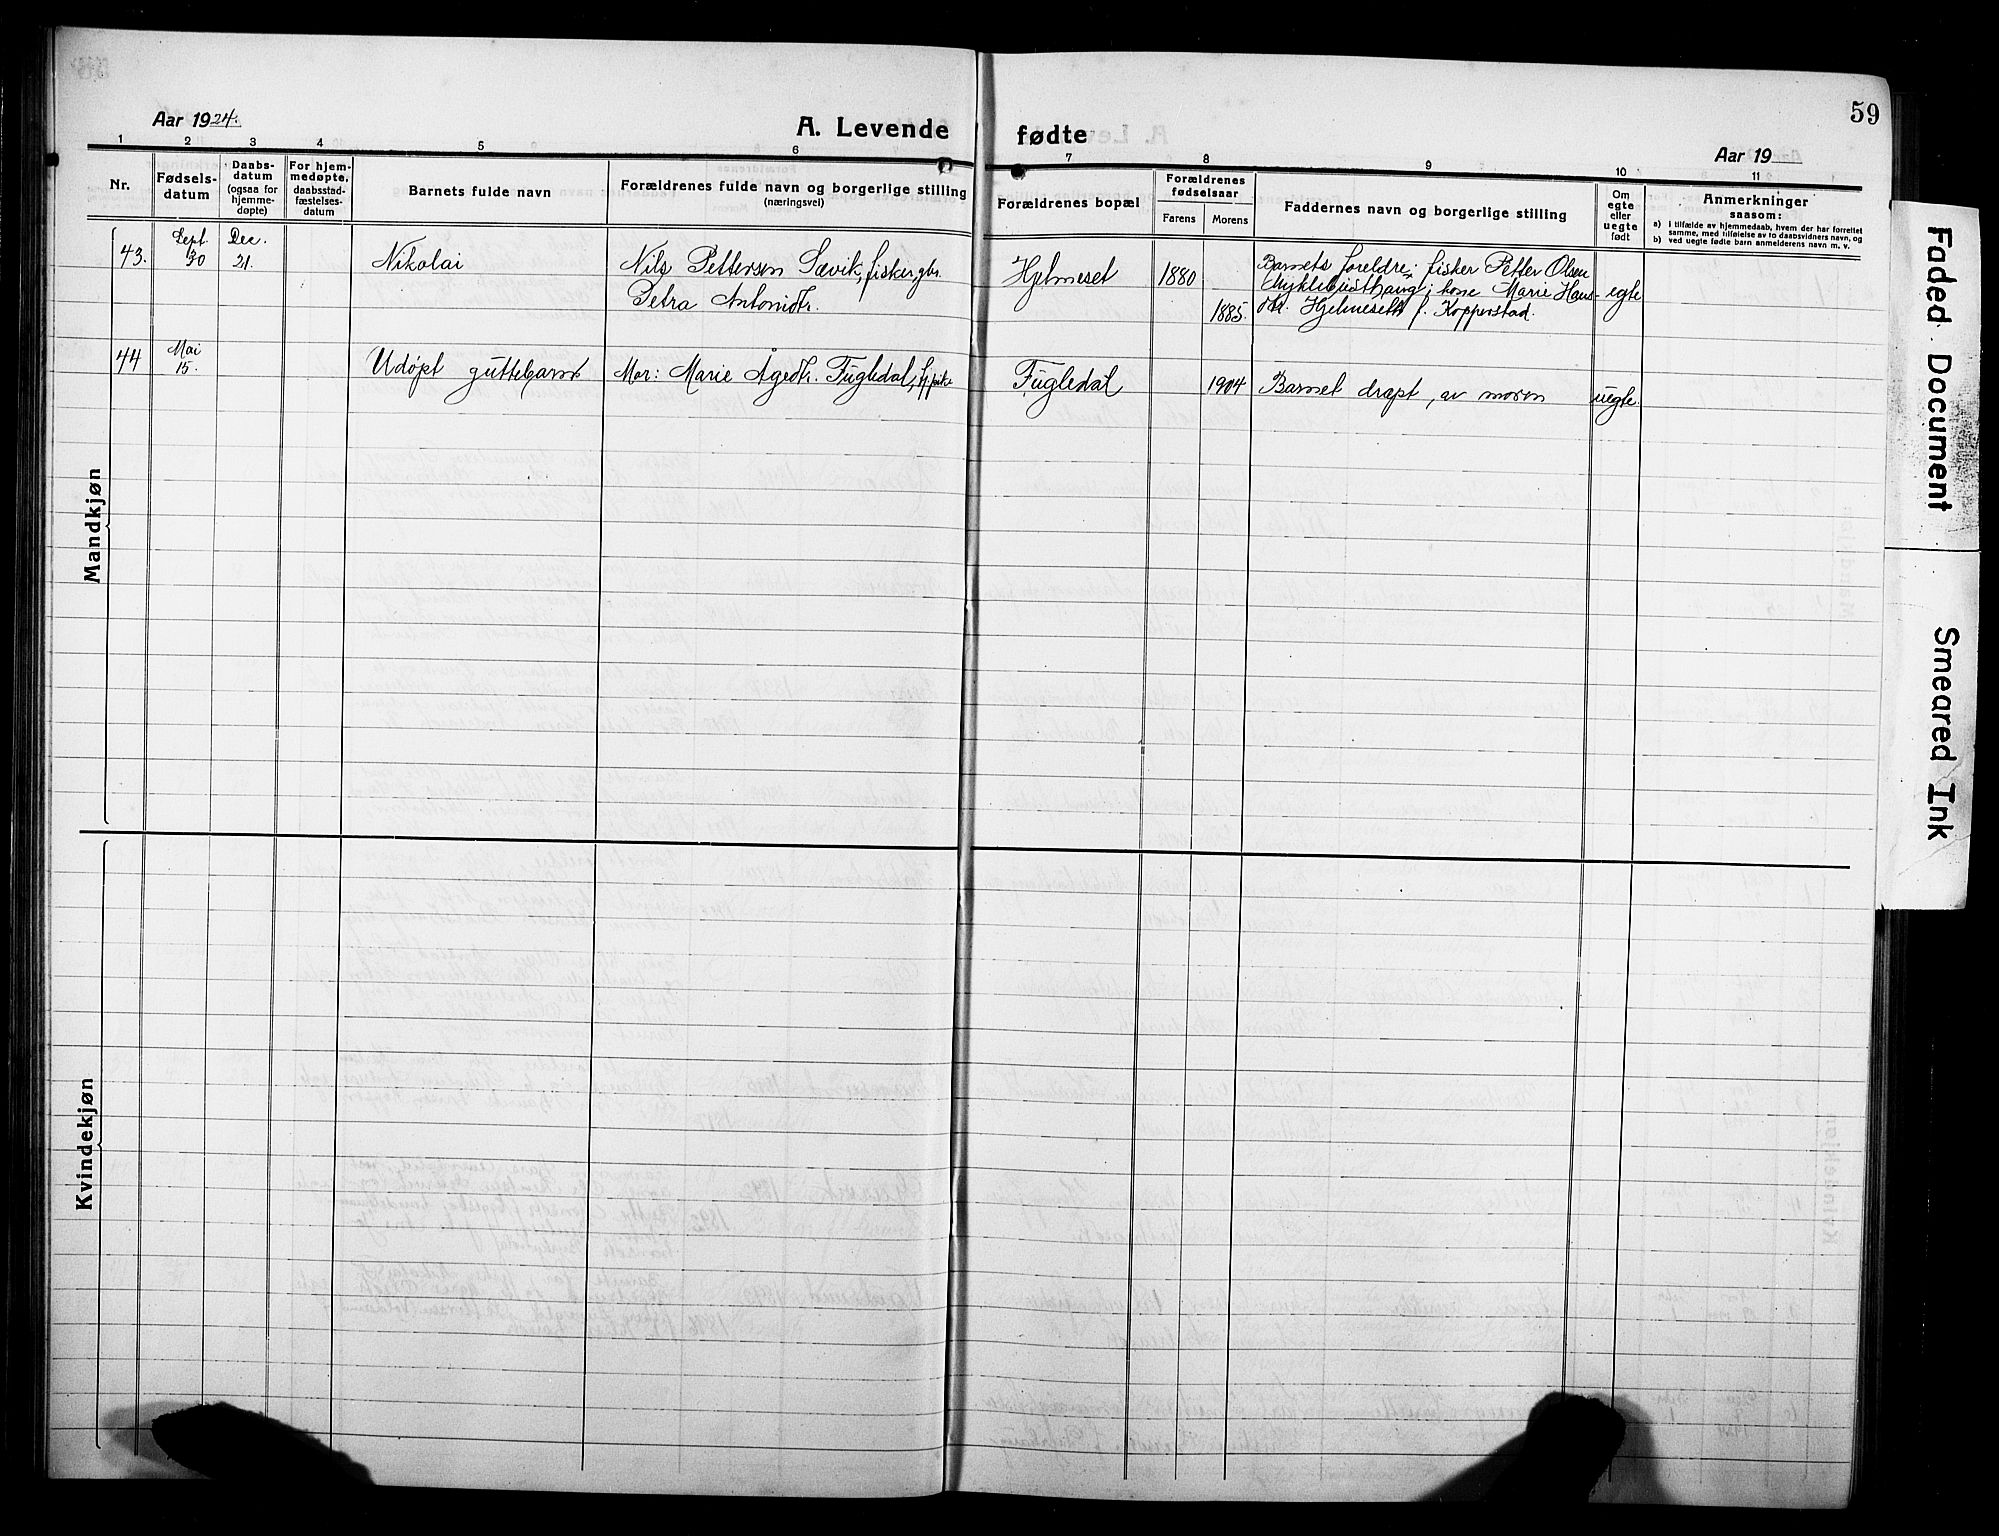 59
Aar 1924.
A. Levende fødte
Aar 19
1 2 3 4 5 6 7 8 9 10 11
Nr.
Fødsels-
datum
Daabs-
datum
(ogsaa for
hjemme-
døpte)
For hjem-
medøpte,
daabsstad-
fæstelses-
datum
Barnets fulde navn
Forældrenes fulde navn og borgerlige stilling
(næringsvei)
Forældrenes bopæl
Forældrenes
fødselsaar
Farens Morens
Faddernes navn og borgerlige stilling
Om
egte
eller
uegte
født
Anmerkninger
saasom:
a) i tilfælde av hjemmedaab, hvem der har forrettet
samme, med tilføielse av to daabsvidners navn, og
b) ved uegte fødte barn anmelderens navn m. v.
Mandkjøn
43.
Sept.
30
Dec.
21.
Nikolai
Nils Pettersen Sævik, fisker, gbr.
Petra Antonidtr.
Hjelmeset
1880
1885.
Barnets foreldre; fisker Petter Olsen
Myklebusthaug; kone Marie Hans-
dtr. Hjelmeseth f. Kopperstad.
egte
44
Mai
15.
Udøpt guttebarn
Mor: Marie Ågedtr. Fugledal,
Fugledal
1904
Barnet dræpt, av moren
uegte.
Kvindekjøn
Faded Document
Smeared Ink